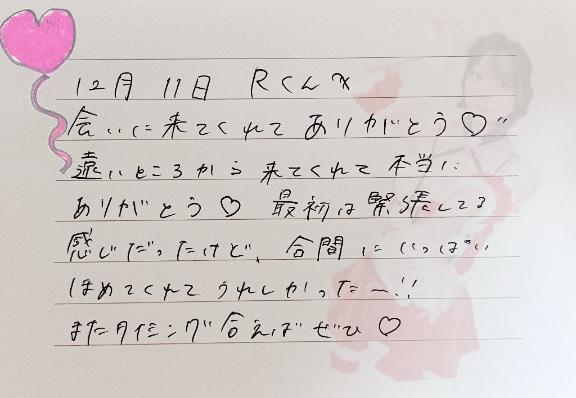 12月 11日 Rくん
会いに来てくれて ありがとう♡
遠いところから 来てくれて 本当に
ありがとう♡ 最初は緊張してる
感じだったけど、合間にいっぱい
ほめてくれて うれしかったー!!
またタイミング合えばぜひ♡